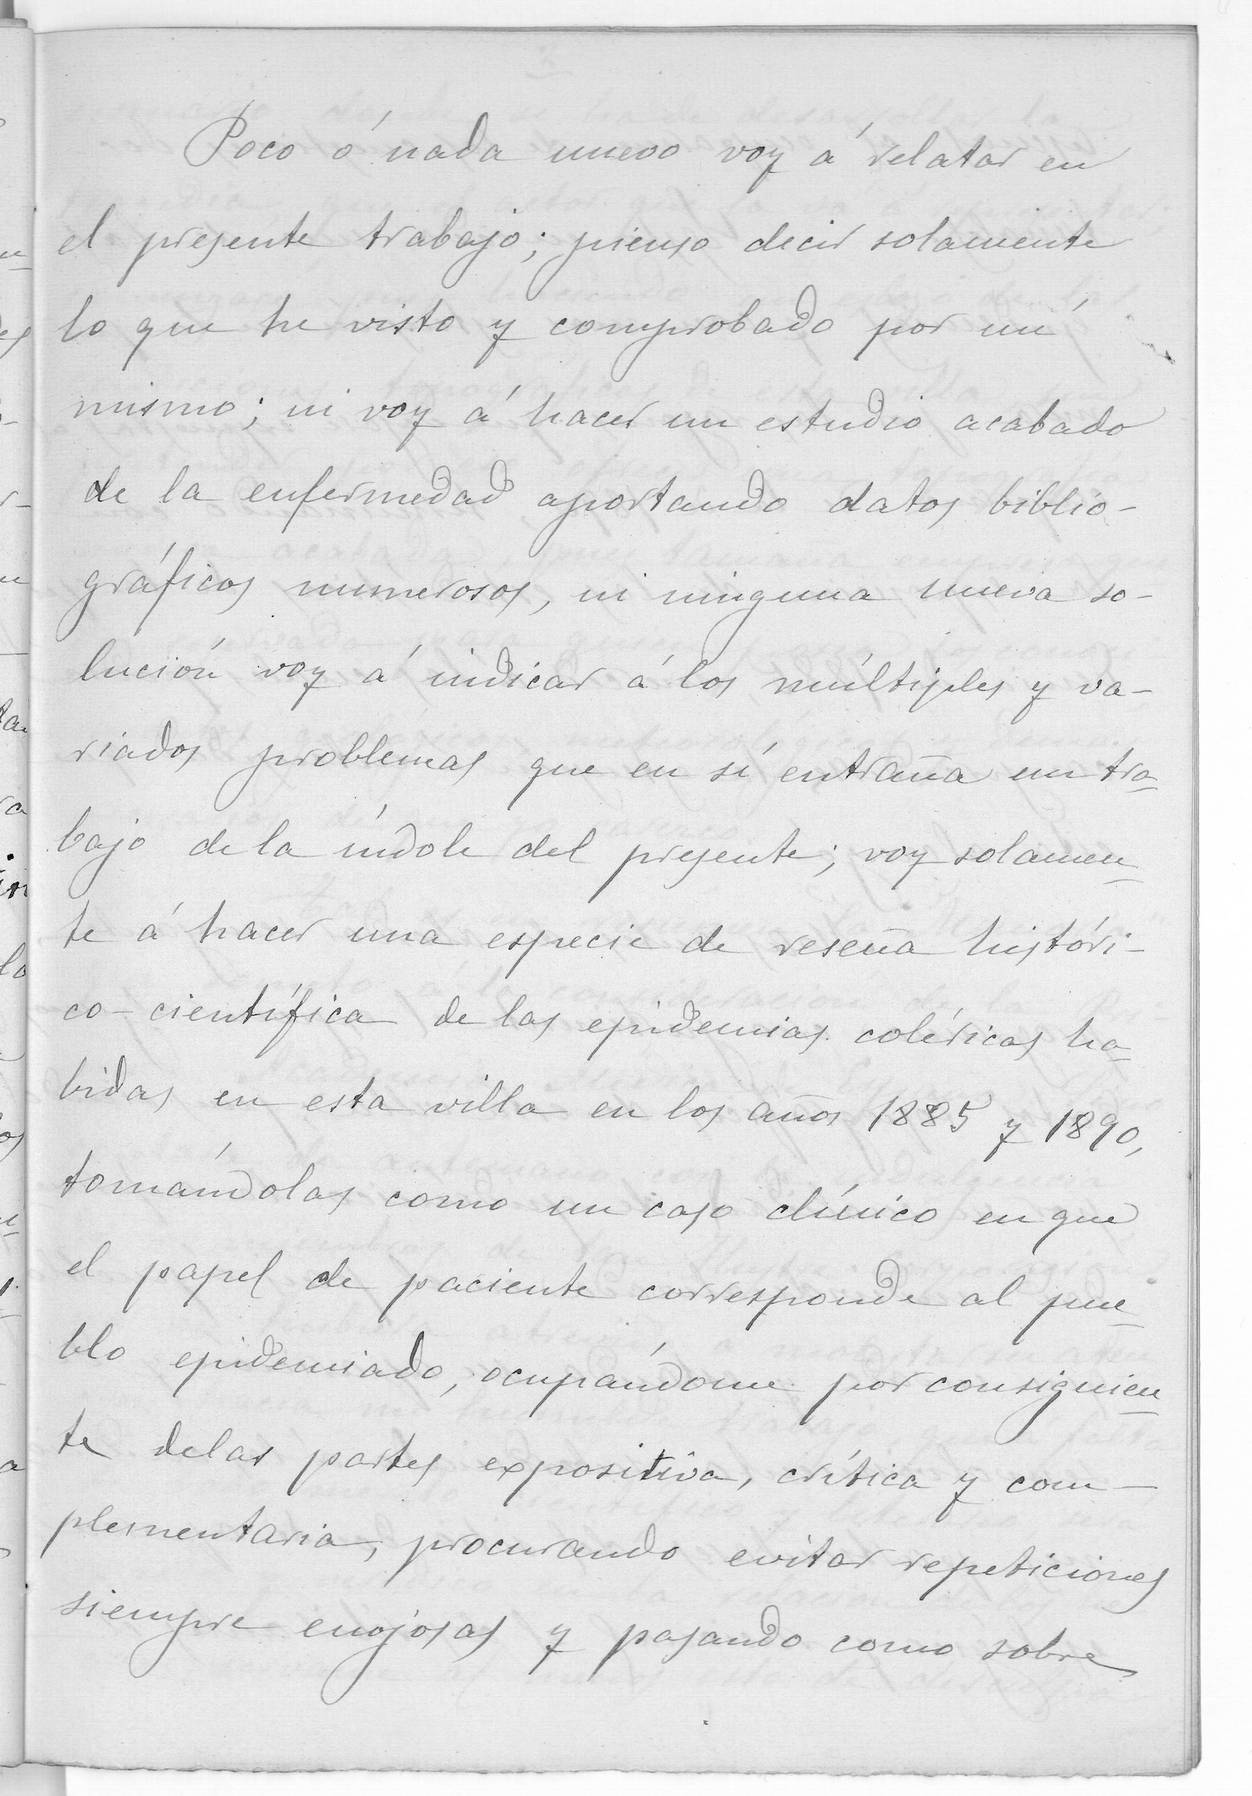 Poco ó nada nuevo voy á relatar en
el presente trabajo; pienso decir solamente
lo que he visto y comprobado por mí
mismo; ni voy á hacer un estudio acabado
de la enfermedad aportando datos biblio-
gráficos numerosos, ni ninguna nueva so-
lución voy á indicar á los múltiples y va-
riados problemas que en sí entraña un tra-
bajo de la índole del presente; voy solamen-
te á hacer una especie de reseña históri-
co-científica de las epidemias coléricas ha-
bidas en esta villa en los años 1885 y 1890,
tomándolas como un caso clínico en que
el papel de paciente corresponde al pue-
blo epidemiado, ocupándome por consiguien-
te delas partes expositiva, crítica y com-
plementaria, procurando evitar repeticiones
siempre enojosas y pasando como sobre